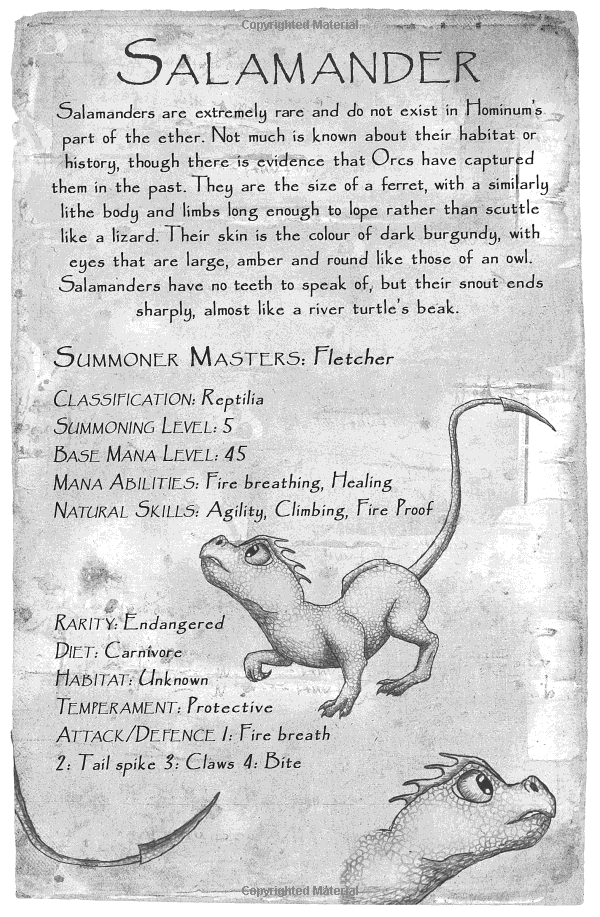 Copyrighted Material
SALAMANDER
Salamanders are extremely rare and do not exist in Hominum's
part of the ether. Not much is known about their habitat or
history, though there is evidence that Orcs have captured
them in the past. They are the size of a ferret, with a similarly
lithe body and limbs long enough to lope rather than scuttle
like a lizard. Their skin is the colour of dark burgundy, with
eyes that are large, amber and round like those of an owl.
Salamanders have no teeth to speak of, but their snout ends
sharply, almost like a river turtle's beak.
SUMMONER MASTERS: Fletcher
CLASSIFICATION: Reptilia
SUMMONING LEVEL: 5
BASE MANA LEVEL: 45
MANA ABILITIES: Fire breathing, Healing
NATURAL SKILLS: Agility, Climbing, Fire Proof
RARITY: Endangered
DIET: Carnivore
HABITAT: Unknown
TEMPERAMENT: Protective
ATTACK/DEFENCE 1: Fire breath
2: Tail spike 3: Claws 4: Bite
Copyrighted Material